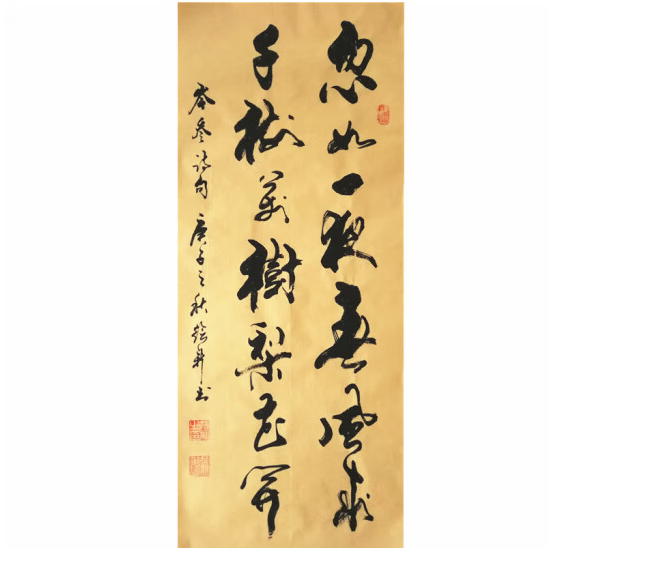 忽如一夜春風來
千樹萬樹梨花開
岑參詩句 庚子之秋 书